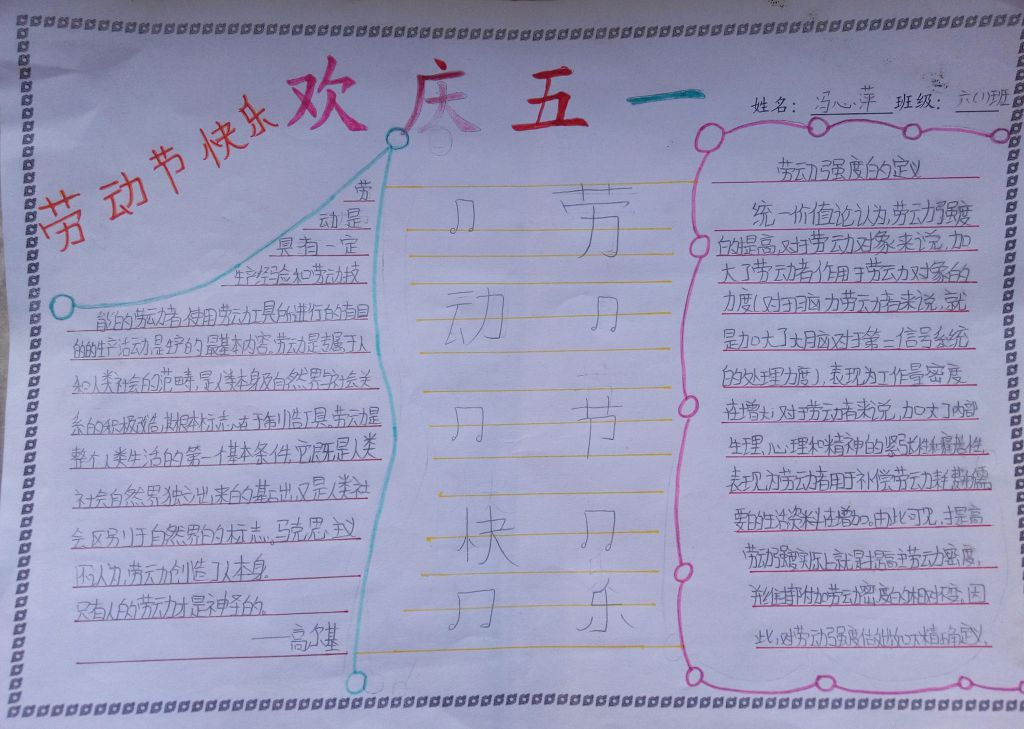 欢庆五一
劳动节快乐
姓名：冯心萍 班级：六(1)班
劳
动是
具有一定
生产经验和劳动技
能的劳动者使用劳动工具所进行的有目
的的生产活动,是生产的最基本内容。劳动是专属于人
和人类社会的范畴,是人类本身及自然界与社会关
系的积极改造,其根本标志在于制造工具。劳动是
整个人类生活的第一个基本条件,它既是人类
社会自然界独立出来的基础,又是人类社
会区别于自然界的标志。马克思主义
认为,劳动创造了人本身。
只有人的劳动才是神圣的。
——高尔基
♫ 劳
动 ♫
♫ 节
快 ♫
♫ 乐
劳动强度的定义
统一价值论认为,劳动强度
的提高,对于劳动对象来说,加
大了劳动者作用于劳动对象的
力度(对于脑力劳动者来说,就
是加大了大脑对于第二信号系统
的处理力度),表现为工作量密度
在增大;对于劳动者来说,加大了内部
生理、心理和精神的紧张性和
表现为劳动者用于补偿劳动耗费所需
要的生活资料在增加。由此可见,提高
劳动强度实际上就是提高劳动密度,
劳动密度的相对不变,因
此,对劳动强度做如下精确定义